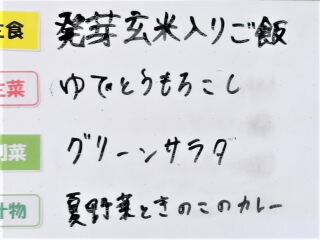 主食 発芽玄米入りご飯
主菜 ゆでとうもろこし
副菜 グリーンサラダ
汁物 夏野菜ときのこのカレー